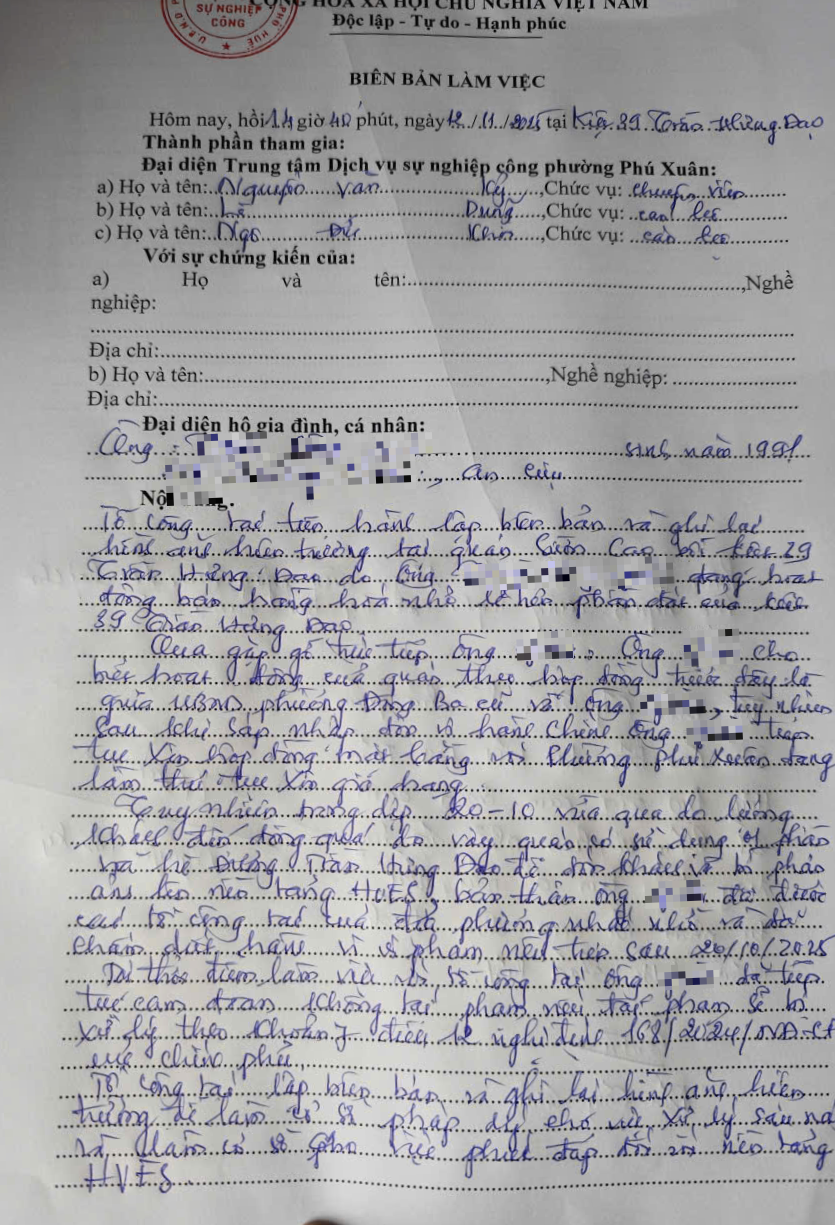 SỰ NGHIỆP
CÔNG
U.B.N.D
HUẾ
CỘNG HÒA XÃ HỘI CHỦ NGHĨA VIỆT NAM
Độc lập - Tự do - Hạnh phúc
BIÊN BẢN LÀM VIỆC
Hôm nay, hồi 14 giờ 40 phút, ngày 12/11/2025 tại Kiệt 39 Trần Hưng Đạo
Thành phần tham gia:
Đại diện Trung tâm Dịch vụ sự nghiệp công phường Phú Xuân:
a) Họ và tên: Nguyễn Văn Kỳ, Chức vụ: chuyên viên
b) Họ và tên: Lê Dũng, Chức vụ: cán bộ
c) Họ và tên: Ngô Đức, Chức vụ: cán bộ
Với sự chứng kiến của:
a) Họ và tên:, Nghề
nghiệp:
Địa chỉ:
b) Họ và tên:, Nghề nghiệp:
Địa chỉ:
Đại diện hộ gia đình, cá nhân:
Ông: sinh năm 1991
, An Cựu
Nộ
Tổ công tác tiến hành lập biên bản và ghi lại
hình ảnh hiện trường tại quán kiệt 39
Trần Hưng Đạo do Ông đang hoạt
động bán hàng hoá nhỏ lẻ trên phần đất của kiệt
39 Trần Hưng Đạo.
Qua gặp gỡ trực tiếp ông. Ông cho
biết hoạt động của quán theo hợp đồng trước đây là
giữa UBND phường Đông Ba cũ và ông, tuy nhiên
sau khi sáp nhập đơn vị hành chính ông tiếp
tục xin hợp đồng mặt bằng với Phường Phú Xuân đang
làm thủ tục xin gia hạn.
Tuy nhiên trong dịp 20-10 vừa qua do lượng
khách đến đông quá do vậy quán có sử dụng 01 phần
vỉa hè Đường Trần Hưng Đạo để đón khách và bị phản
ánh lên nền tảng HUES, bản thân ông đã được
các tổ công tác của địa phương nhắc nhở và đã
chấm dứt hành vi vi phạm nêu trên sau 20/10/2025
Tại thời điểm làm việc với tổ công tác ông đã tiếp
tục cam đoan không tái phạm nếu tái phạm sẽ bị
xử lý theo khoản 7 điều 12 nghị định 168/2024/NĐ-CP
của chính phủ.
Tổ công tác lập biên bản và ghi lại hình ảnh hiện
trường để làm cơ sở pháp lý cho việc xử lý sau nà
và làm cơ sở cho việc phúc đáp đối với nền tảng
HVES